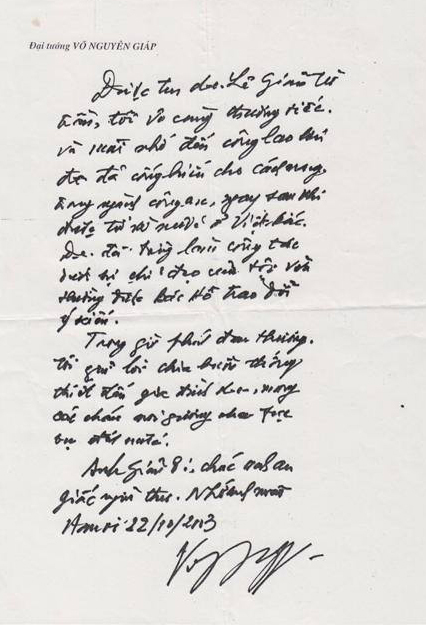 Đại tướng VÕ NGUYÊN GIÁP
Được tin đ/c Lê Giản từ
trần, tôi vô cùng thương tiếc
và mãi nhớ đến công lao mà
đ/c đã cống hiến cho cách mạng,
trong ngành công an, ngay sau khi
được từ nước ở Việt Bắc.
Đ/c đã từng công tác
dưới sự chỉ đạo của tôi và
thường được Bác Hồ trao đổi
ý kiến.
Trong giờ phút đau thương,
tôi gửi lời chia buồn thống
thiết đến gia đình đ/c, mong
các cháu noi gương cha phục
vụ đất nước.
Anh Giản ơi, chúc anh an
giấc nghìn thu.
22/10/2003